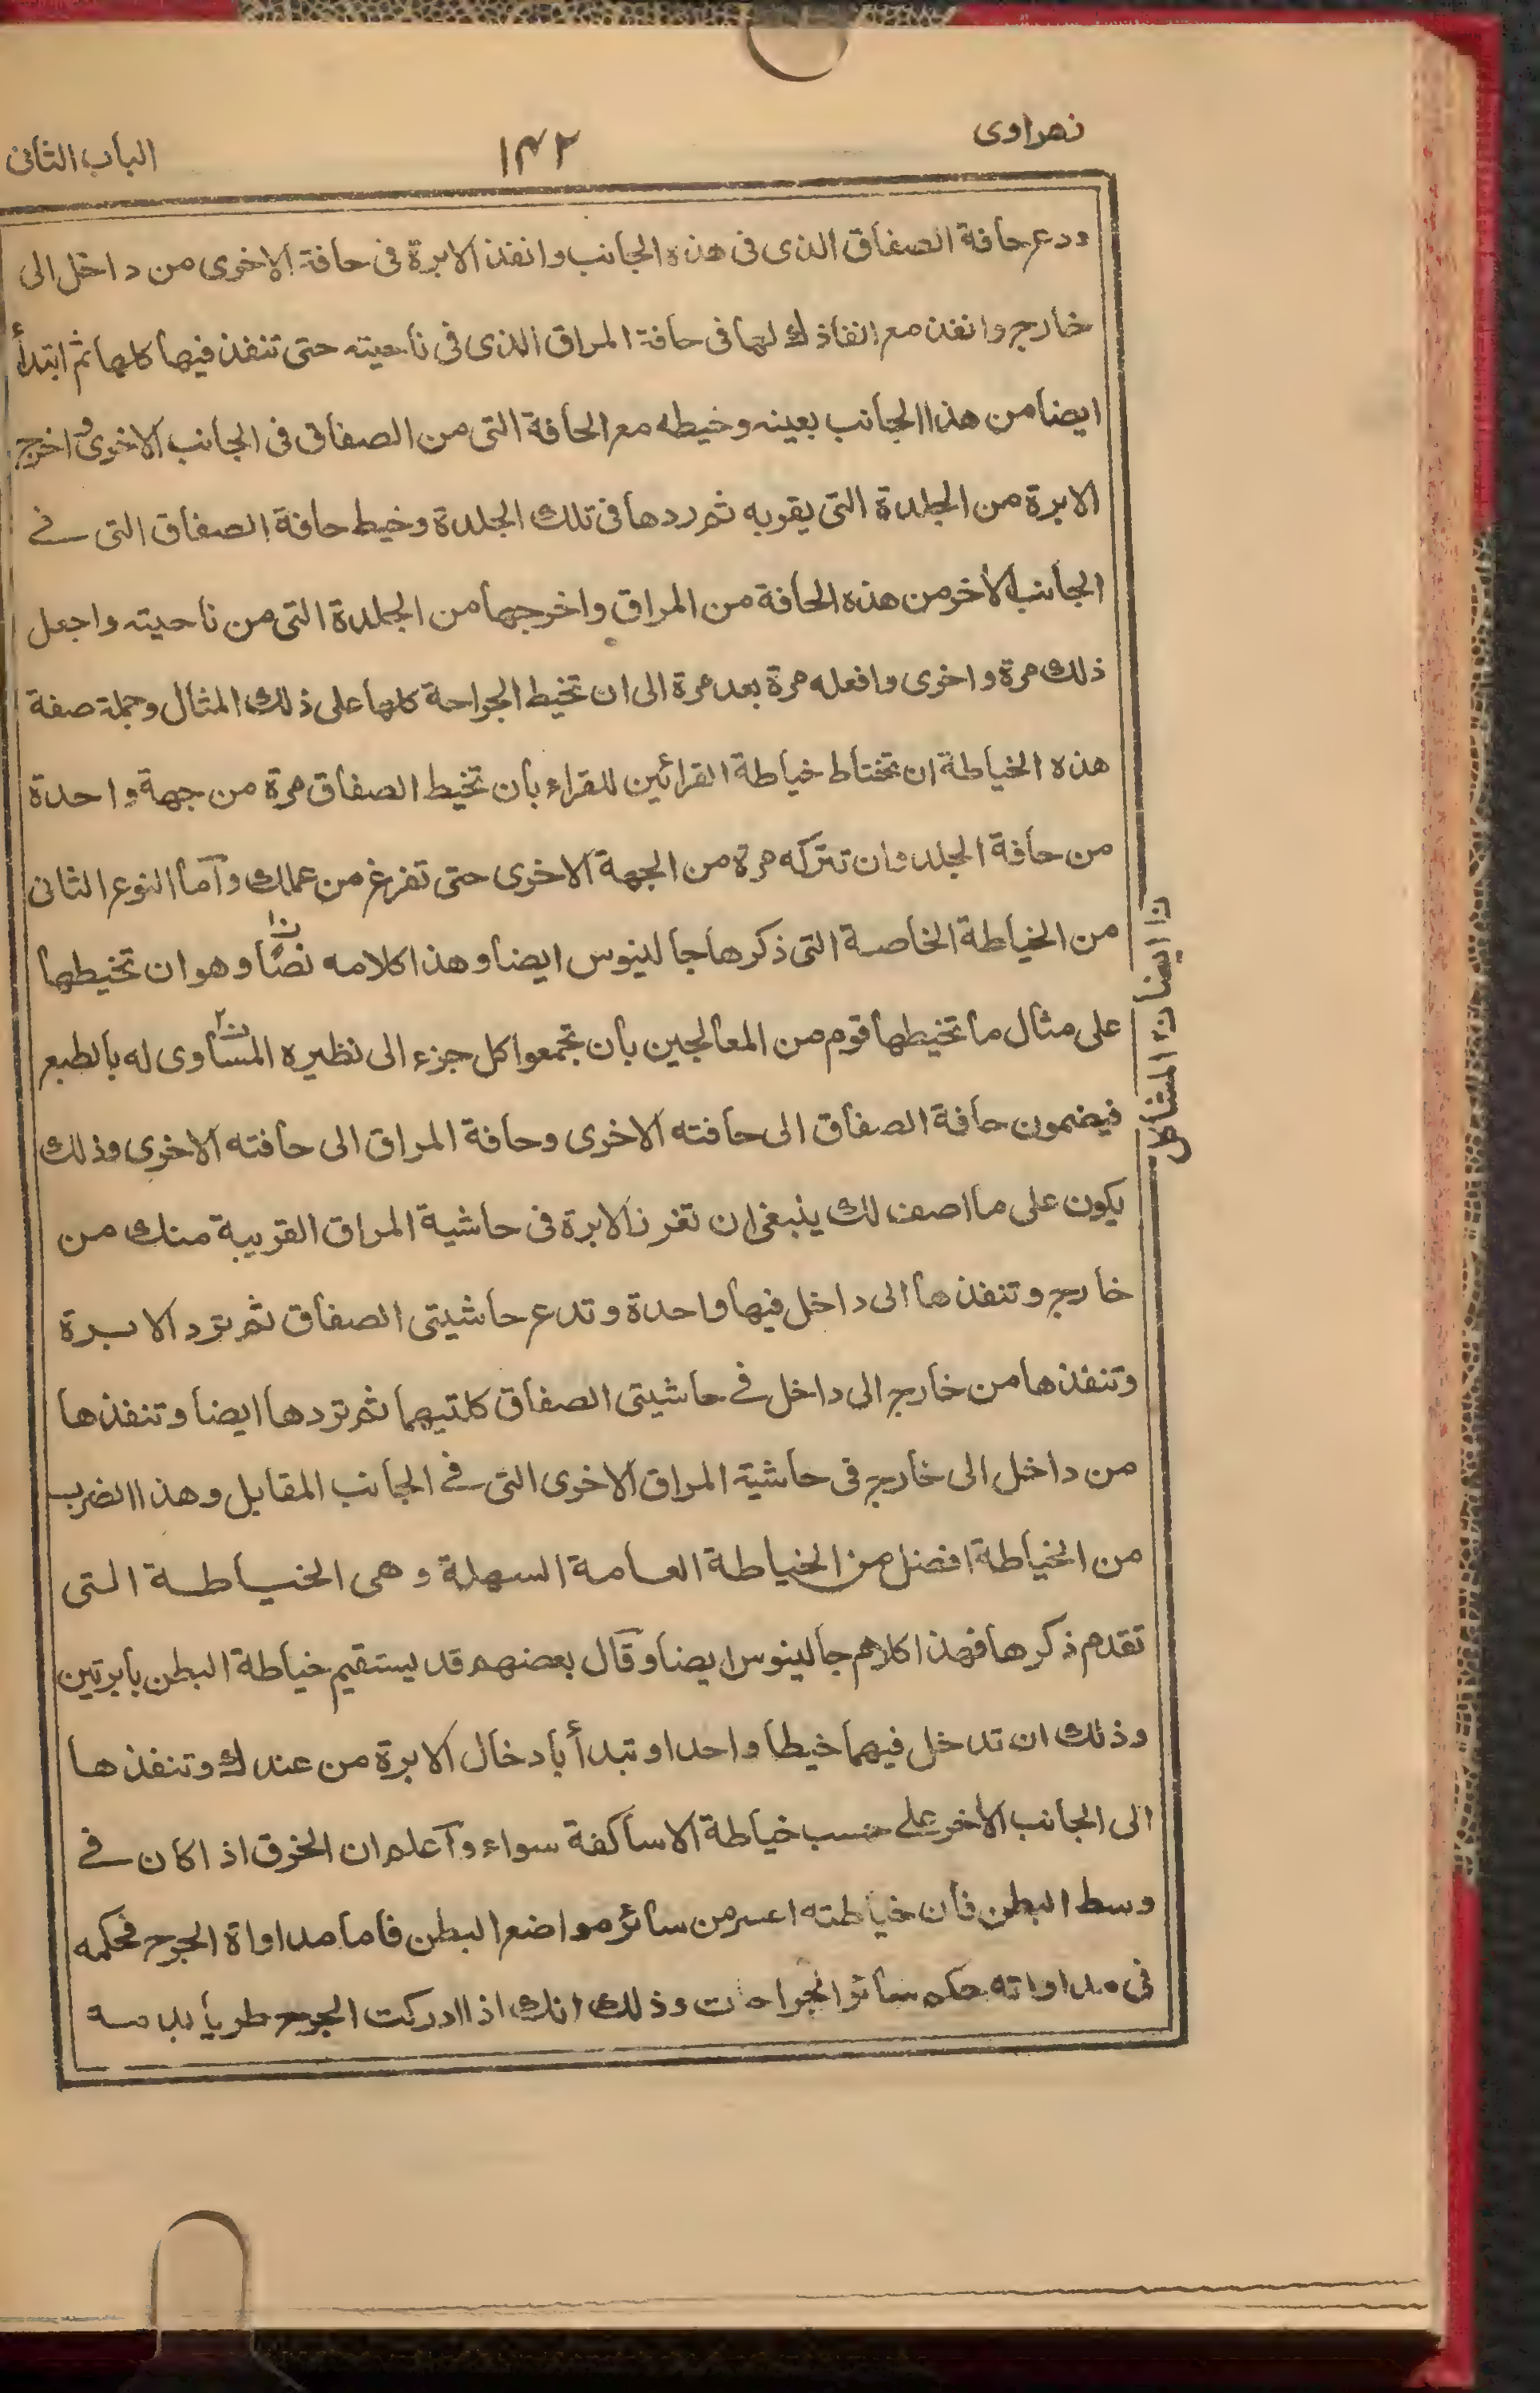 زهراوى
١٤٢
الباب الثانى
ودع حافة الصفاق الذى فى هذه الجانب وانفذ الابرة فى حافة الاخرى من داخل الى
خارج وانفذ مع انفاذك لها فى حافة المراق الذى فى ناحيته حتى تنفذ فيها كلها ثم ابتدأ
ايضا من هذا الجانب بعينه وخيطه مع الحافة التى من الصفاق فى الجانب الاخرى و اخرج
الابرة من الجلدة التى يقربه ثم ردها فى تلك الجلدة وخيط حافة الصفاق التى فى
الجانب الآخر من هذه الحافة من المراق واخرجها من الجلدة التى من ناحيته واجعل
ذلك مرة واخرى وافعله مرة بعد مرة الى ان تخيط الجراحة كلها على ذلك المثال وجملة صفة
هذه الخياطة ان تختاط خياطة القرائين للقراء بان تخيط الصفاق مرة من جهة واحدة
من حافة الجلد وان تتركه مرة من الجهة الاخرى حتى تفرغ من عملك وآما النوع الثانى
من الخياطة الخاصة التى ذكرها جالينوس ايضا وهذا كلامه نصًّا وهو ان تخيطها
على مثال ما تخيطها قوم من المعالجين بان تجمعوا كل جزء الى نظيره المساوى له بالطبع
فيضمون حافة الصفاق الى حافته الاخرى وحافة المراق الى حافته الاخرى وذلك
يكون على ما اصف لك ينبغى ان تغرز الابرة فى حاشية المراق القريبة منك من
خارج وتنفذها الى داخل فيها واحدة وتدع حاشيتى الصفاق ثم ترد الابرة
وتنفذها من خارج الى داخل فى حاشيتى الصفاق كلتيهما ثم تردها ايضا وتنفذها
من داخل الى خارج فى حاشية المراق الاخرى التى فى الجانب المقابل وهذا الضرب
من الخياطة افضل من الخياطة العامة السهلة وهى الخياطة التى
تقدم ذكرها فهذا كلام جالينوس ايضا وقآل بعضهم قد يستقيم خياطة البطن بابرتين
وذلك ان تدخل فيهما خيطا واحدا وتبدأ بادخال الابرة من عندك وتنفذها
الى الجانب الآخر على حسب خياطة الاساكفة سواء وآعلم ان الخرق اذا كان فى
وسط البطن فان خياطته اعسر من سائر مواضع البطن فاما مداواة الجرح فحكمه
فى مداواته حكم سائر الجراحات وذلك انك اذا ادركت الجرح طريا بدمه
ن١ ايضا ن٢ المشاكل